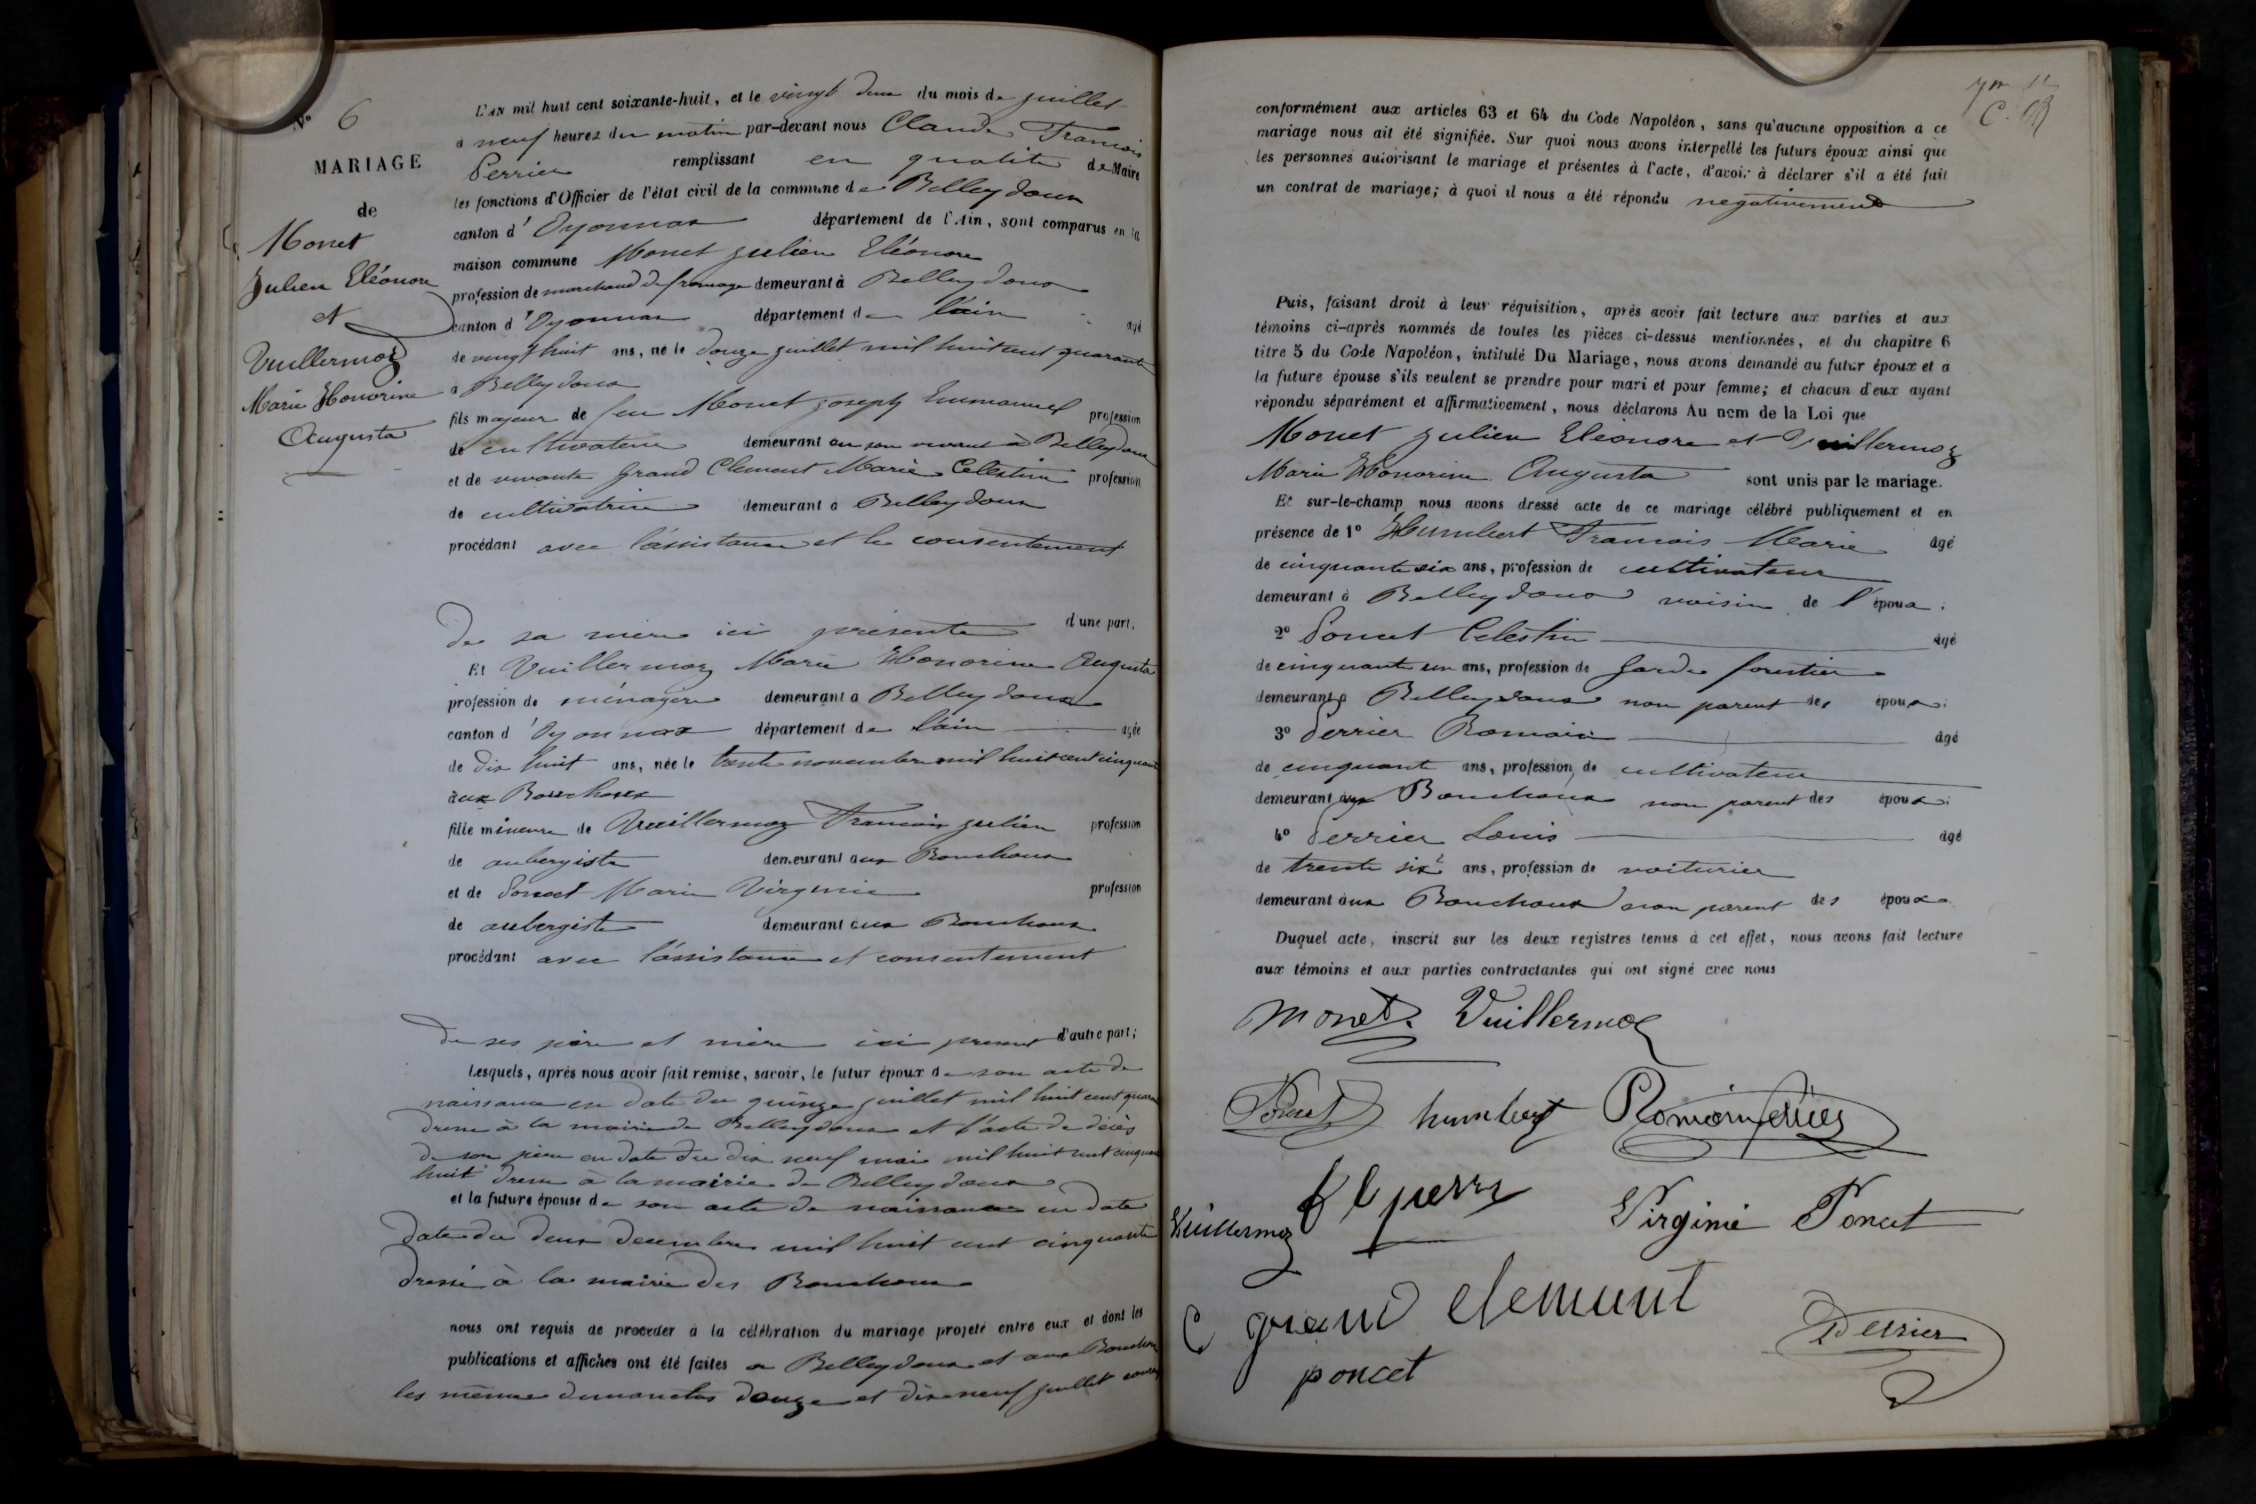 N° 6
MARIAGE
de
Monet
Julien Eléonore
et
Vuillermoz
Marie Honorine
Augusta
L'AN mil huit cent soixante-huit, et le vingt deux du mois de juillet
à neuf heures du matin par-devant nous Claude François
Perrier remplissant en qualité de Maire
les fonctions d'Officier de l'état civil de la commune de Belleydoux
canton d'Oyonnax département de l'Ain, sont comparus en la
maison commune Monet Julien Eléonore
profession de marchand de fromage demeurant à Belleydoux
canton d'Oyonnax département de l'ain âgé
de vingt huit ans, né le douze juillet mil huit cent quarante
à Belleydoux
fils majeur de feu Monet Joseph Emmanuel profession
de cultivateur demeurant en son vivant à Belleydoux
et de vivante Grand Clement Marie Celestine profession
de cultivatrice demeurant à Belleydoux
procédant avec l'assistance et le consentement
de sa mère ici présente d'une part,
Et Vuillermoz Marie Honorine Augusta
profession de ménagère demeurant à Belleydoux
canton d'Oyonnax département de l'ain âgée
de dix huit ans, née le trente novembre mil huit cent cinquante
aux Bouchoux
fille mineure de Vuillermoz François Julien profession
de aubergiste demeurant aux Bouchoux
et de Poncet Marie Virginie profession
de aubergiste demeurant aux Bouchoux
procédant avec l'assistance et consentement
de ses père et mère ici présent d'autre part;
Lesquels, après nous avoir fait remise, savoir, le futur époux de son acte de
naissance en date du quinze juillet mil huit cent quarante
dressé à la mairie de Belleydoux et l'acte de décès
de son père en date du dix neuf mai mil huit cent cinquante
huit dressé à la mairie de Belleydoux
et la future épouse de son acte de naissance en date
date du deux decembre mil huit cent cinquante
dressé à la mairie des Bouchoux
nous ont requis de procéder à la célébration du mariage projeté entre eux et dont les
publications et affiches ont été faites à Belleydoux et aux Bouchoux
les mêmes dimanches douze et dix neuf juillet courant
conformément aux articles 63 et 64 du Code Napoléon, sans qu'aucune opposition à ce
mariage nous ait été signifiée. Sur quoi nous avons interpellé les futurs époux ainsi que
les personnes autorisant le mariage et présentes à l'acte, d'avoir à déclarer s'il a été fait
un contrat de mariage; à quoi il nous a été répondu negativement
Puis, faisant droit à leur réquisition, après avoir fait lecture aux parties et aux
témoins ci-après nommés de toutes les pièces ci-dessus mentionnées, et du chapitre 6
titre 5 du Code Napoléon, intitulé Du Mariage, nous avons demandé au futur époux et à
la future épouse s'ils veulent se prendre pour mari et pour femme; et chacun d'eux ayant
répondu séparément et affirmativement, nous déclarons Au nom de la Loi que
Monet Julien Eléonore et Vuillermoz
Marie Honorine Augusta sont unis par le mariage.
Et sur-le-champ nous avons dressé acte de ce mariage célébré publiquement et en
présence de 1° Humbert François Marie âgé
de cinquante six ans, profession de cultivateur
demeurant à Belleydoux voisin de l'époux;
2° Poncet Celestin âgé
de cinquante un ans, profession de garde forestier
demeurant à Belleydoux non parent des époux;
3° Perrier Romain âgé
de cinquante ans, profession de cultivateur
demeurant aux Bouchoux non parent des époux;
4° Perrier Louis âgé
de trente six ans, profession de voiturier
demeurant aux Bouchoux non parent des époux
Duquel acte, inscrit sur les deux registres tenus à cet effet, nous avons fait lecture
aux témoins et aux parties contractantes qui ont signé avec nous
Monet Vuillermoz
Poncet humbert Romain Perrier
Vuillermoz Virginie Poncet
C grand clement
poncet
Perrier